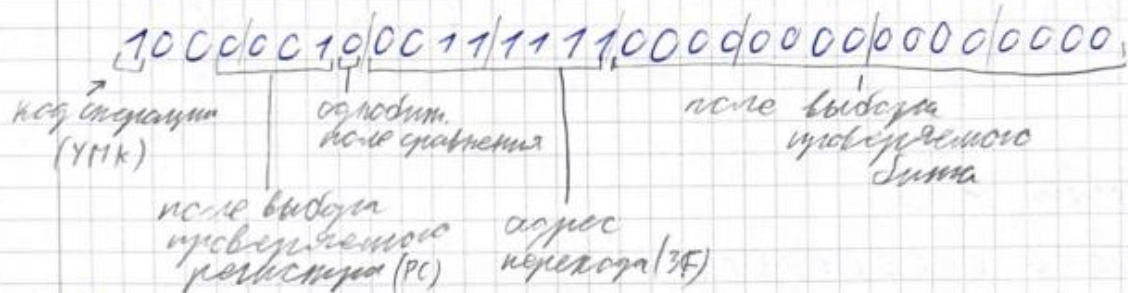 1000|0010|0011|1111|0000|0000|0000|0000
код операции
(УМК)
однобит.
поле сравнения
поле выбора
проверяемого
бита
поле выбора
проверяемого
регистра (РС)
адрес
перехода (3F)